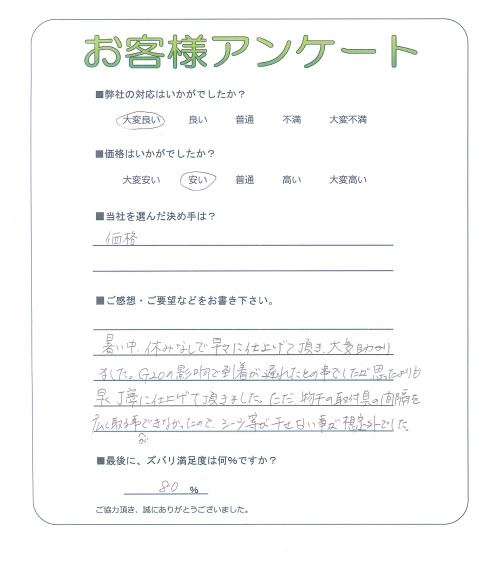 お客様アンケート
■弊社の対応はいかがでしたか？
大変良い 良い 普通 不満 大変不満
■価格はいかがでしたか？
大変安い 安い 普通 高い 大変高い
■当社を選んだ決め手は？
価格
■ご感想・ご要望などをお書き下さい。
暑い中、休みなしで早々に仕上げて頂き、大変助かり
ました。G20の影響で到着が遅れたとの事でしたが思ったよりも
早く丁寧に仕上げて頂きました。ただ、物干の取付具の間隔を
広く取る事ができなかったので、シーツ等が干せない事が想定外でした。
■最後に、ズバリ満足度は何％ですか？
80 ％
ご協力頂き、誠にありがとうございました。